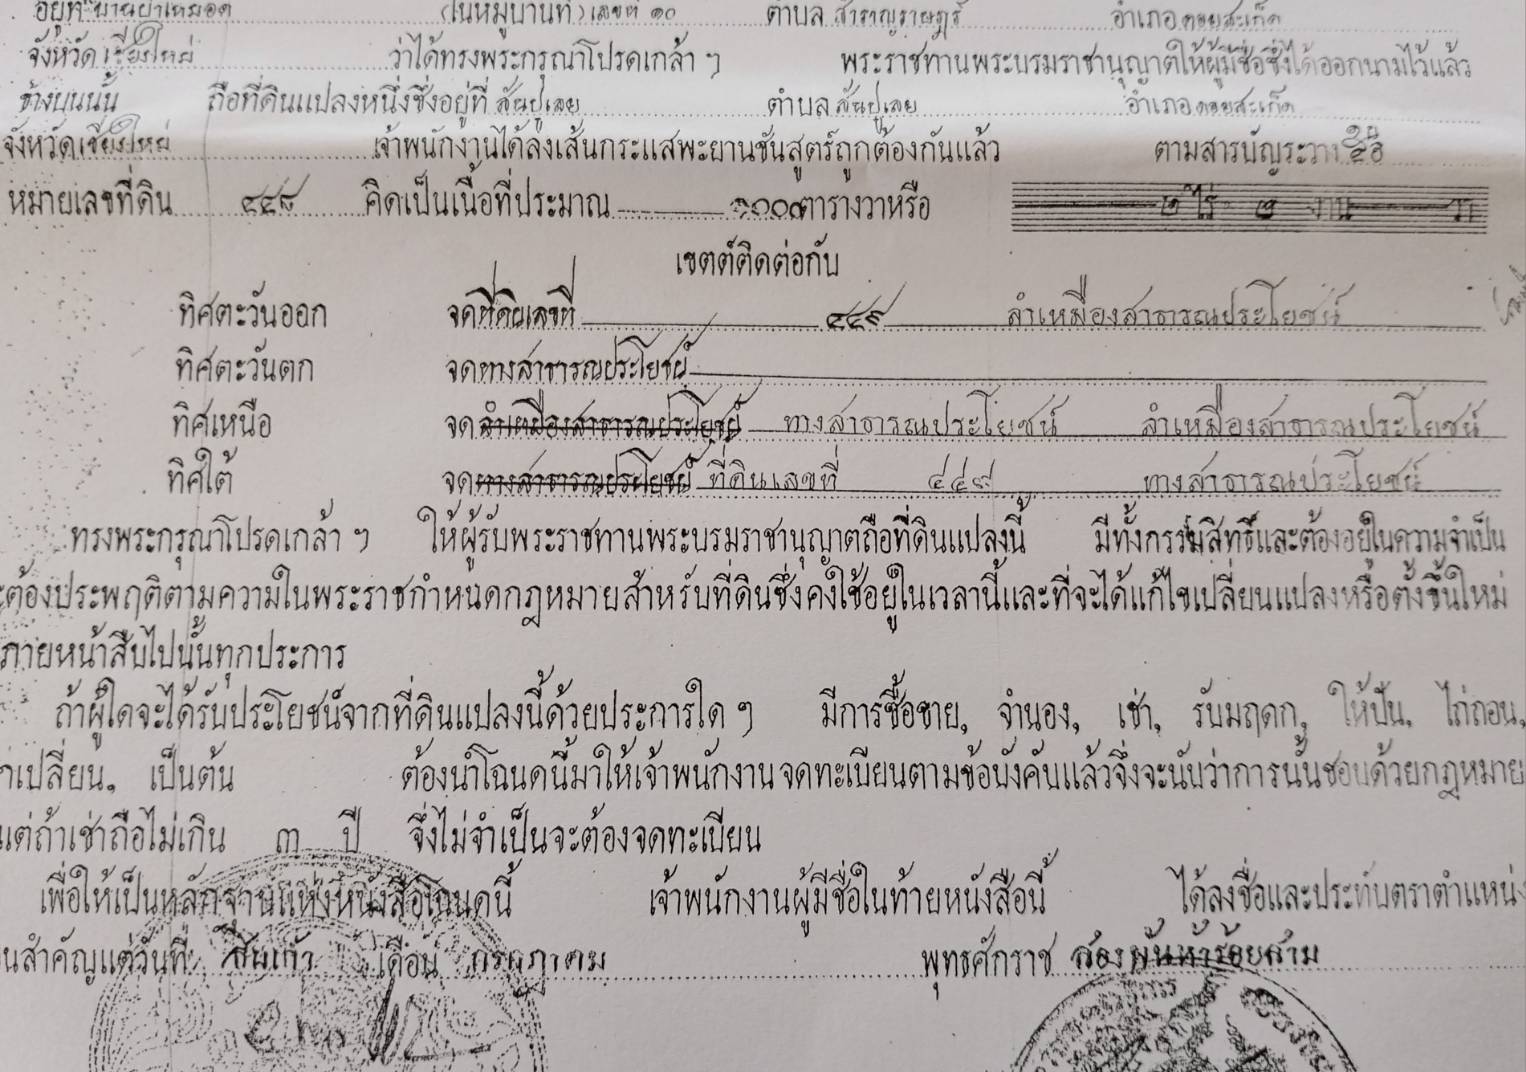 อยู่ที่ (ในหมู่บ้านที่) เลขที่ ๑๐ ตำบล สำราญราษฎร์ อำเภอ ดอยสะเก็ด
จังหวัด เชียงใหม่ ว่าได้ทรงพระกรุณาโปรดเกล้า ฯ พระราชทานพระบรมราชานุญาตให้ผู้มีชื่อซึ่งได้ออกนามไว้แล้ว
ข้างบนนั้น ถือที่ดินแปลงหนึ่งซึ่งอยู่ที่ สันปูเลย ตำบล สันปูเลย อำเภอ ดอยสะเก็ด
จังหวัด เชียงใหม่ เจ้าพนักงานได้ลงเส้นกระแสพะยานชันสูตร์ถูกต้องกันแล้ว ตามสารบัญระวาง
หมายเลขที่ดิน ๔๔๘ คิดเป็นเนื้อที่ประมาณ ตารางวาหรือ ๒ ไร่ ๒ งาน วา
เขตต์ติดต่อกับ
ทิศตะวันออก จดที่ดินเลขที่ ๔๔๙ ลำเหมืองสาธารณประโยชน์
ทิศตะวันตก จดทางสาธารณประโยชน์
ทิศเหนือ จดลำเหมืองสาธารณประโยชน์ ทางสาธารณประโยชน์ ลำเหมืองสาธารณประโยชน์
ทิศใต้ จดทางสาธารณประโยชน์ ที่ดินเลขที่ ๔๔๙ ทางสาธารณประโยชน์
ทรงพระกรุณาโปรดเกล้า ฯ ให้ผู้รับพระราชทานพระบรมราชานุญาตถือที่ดินแปลงนี้ มีทั้งกรรมสิทธิ์และต้องอยู่ในความจำเป็น
ะต้องประพฤติตามความในพระราชกำหนดกฎหมายสำหรับที่ดินซึ่งคงใช้อยู่ในเวลานี้และที่จะได้แก้ไขเปลี่ยนแปลงหรือตั้งขึ้นใหม่
ภายหน้าสืบไปนั้นทุกประการ
ถ้าผู้ใดจะได้รับประโยชน์จากที่ดินแปลงนี้ด้วยประการใด ๆ มีการซื้อขาย, จำนอง, เช่า, รับมฤดก, ให้ปัน, ไถ่ถอน,
กเปลี่ยน, เป็นต้น ต้องนำโฉนดนี้มาให้เจ้าพนักงานจดทะเบียนตามข้อบังคับแล้วจึ่งจะนับว่าการนั้นชอบด้วยกฎหมาย
แต่ถ้าเช่าถือไม่เกิน ๓ ปี จึ่งไม่จำเป็นจะต้องจดทะเบียน
เพื่อให้เป็นหลักฐานแห่งหนังสือโฉนดนี้ เจ้าพนักงานผู้มีชื่อในท้ายหนังสือนี้ ได้ลงชื่อและประทับตราตำแหน่ง
นสำคัญแต่วันที่ สิบเก้า เดือน กรกฎาคม พุทธศักราช สองพันห้าร้อยสาม